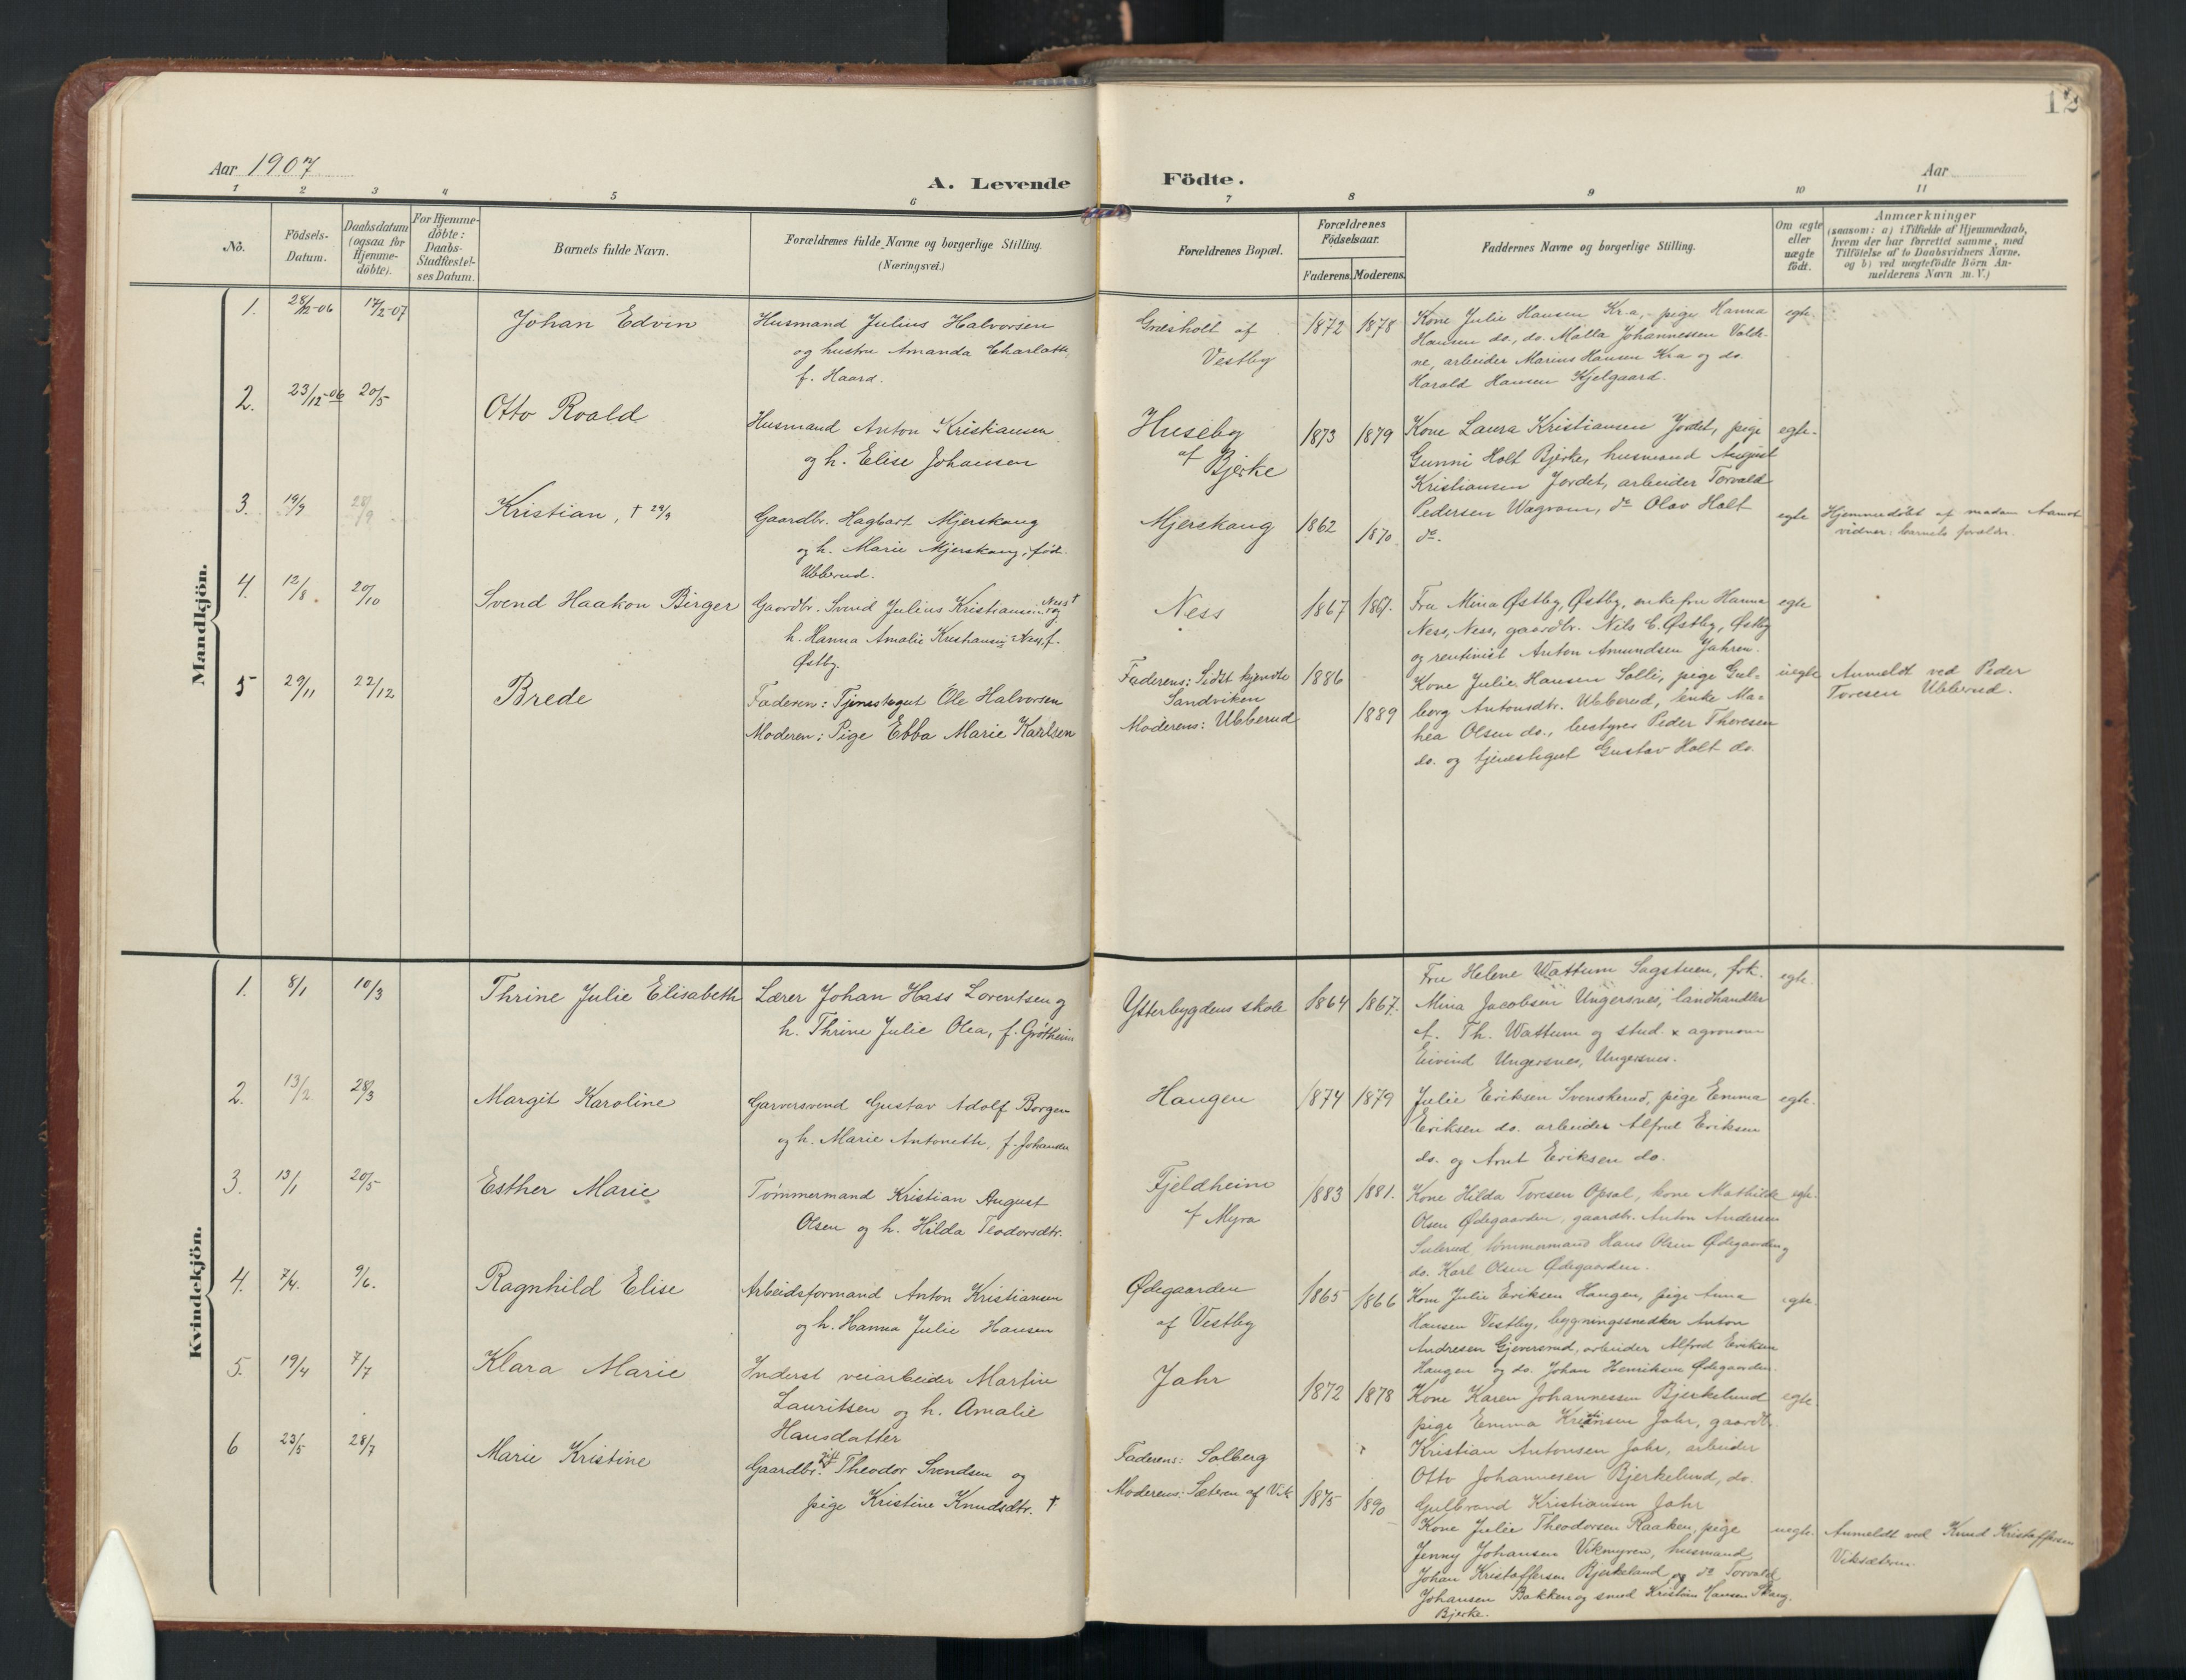 12
Aar 1907
A. Levende
Födte.
Aar
1 2 3 4 5 6 7 8 9 10 11
No.
Födsels-Datum.
Daabsdatum (ogsaa for Hjemme-döbte).
For Hjemme-döbte: Daabs-Stadfæstel-ses Datum.
Barnets fulde Navn.
Forældrenes fulde Navne og borgerlige Stilling.
(Næringsvei.)
Forældrenes Bopæl.
Forældrenes Födselsaar.
Faderens. Moderens.
Faddernes Navne og borgerlige Stilling.
Om ægte eller uægte födt.
Anmærkninger
(saasom: a) i Tilfælde af Hjemmedaab,
hvem der har forrettet samme, med
Tilföielse af to Daabsvidners Navne,
og b) ved uægtefödte Börn An-
melderens Navn m. V.)
Mandkjön.
1. 28/12-06 17/2-07 Johan Edvin
Husmand Julius Halvorsen
og hustru Amanda Charlotte
f. Haard.
Gnesholt af
Vestby
1872 1878
Kone Julie Hansen Kr.a, pige Hanna
Hansen do., do. Malla Johannessen Valde-
ne, arbeider Marius Hansen Kr.a og do.
Harald Hansen Kjelgaard.
egte.
2. 23/12-06 20/5 Otto Roald
Husmand Anton Kristiansen
og h. Elise Johansen
Huseby
af Bjerke
1873 1879
Kone Laura Kristiansen Jordet, pige
Gunni Holt Bjerke, husmand August
Kristiansen Jordet, arbeider Torvald
Pedersen Wagvam, do Olav Holt
do.
egte.
3. 19/9 28/9 Kristian, † 29/9
Gaardbr. Hagbart Mjerskaug
og h. Marie Mjerskaug, född.
Ubberud.
Mjerskaug
1862 1870
egte
Hjemmedöbt af madam Aamot
vidner: barnets forældr.
4. 12/8 20/10 Svend Haakon Birger
Gaardbr. Svend Julius Kristiansen Ness † og
h. Hanna Amalie Kristiansen Ness, f.
Østby.
Ness
1867 1867.
Fru Mina Østby, Østby, enkefru Hanna
Ness, Ness, gaardbr. Nils C. Østby, Østby
og rentinist Anton Amundsen Jahren.
egte
5 29/11 22/12 Brede
Faderen: Tjenestegut Ole Halvorsen
Moderen: Pige Ebba Marie Karlsen
Faderens: Sidst kjendte
Sandviken
Moderens: Ubberud
1886
1889
Kone Julie Hansen Solli, pige Gul-
borg Antonsdtr. Ubberud, enke Ma-
hea Olsen do., bestyrer Peder Thoresen
do. og tjenestegut Gustav Holt do.
uegte
Anmeldt ved Peder
Toresen Ubberud.
Kvindekjön.
1. 8/1 10/3 Thrine Julie Elisabeth
Lærer Johan Hass Lorentsen og
h. Thrine Julie Olea, f. Grötheim
Ytterbygdens skole
1864 1867.
Fru Helene Wattum Sagstuen, frk.
Mina Jacobsen Ungersnes, landhandler
A. Th. Wattum og stud. & agronom
Eivind Ungersnes, Ungersnes.
egte.
2. 13/2 28/3 Margit Karoline
Garversvend Gustav Adolf Borgen
og h. Marie Antonette, f. Johansen
Haugen
1874 1879
Julie Eriksen Svenskerud, pige Emma
Eriksen do. arbeider Alfred Eriksen
do. og Arnt Eriksen do.
egte.
3. 13/1 20/5 Esther Marie
Tömmermand Kristian August
Olsen og h. Hilda Teodorsdtr.
Fjeldheim
af Myra
1883 1881.
Kone Hilda Toresen Opsal, kone Mathilde
Olsen Ødegaarden, gaardbr. Anton Andersen
Sulerud, tömmermand Hans Olsen Ødegaarden og
do. Karl Olsen Ødegaarden.
egte.
4. 7/4. 9/6. Ragnhild Elise
Arbeidsformand Anton Kristiansen
og h. Hanna Julie Hansen
Ødegaarden
af Vestby
1865 1866
Kone Julie Eriksen Haugen, pige Anna
Hansen Vestby, bygningssnedker Anton
Andresen Gjeversrud, arbeider Alfred Eriksen
Haugen og do. Johan Henriksen Ødegaarden.
egte.
5. 19/4 7/7 Klara Marie
Inderst veiarbeider Martin
Lauritsen og h. Amalie
Hansdatter
Jahr
1872 1878
Kone Karen Johannessen Bjerkelund
pige Emma Kristiansen Jahr, gaardbr.
Kristian Antonsen Jahr, arbeider
Otto Johannesen Bjerkelund, do.
Gulbrand Kristiansen Jahr
egte.
6 23/5 28/7 Marie Kristine
Gaardbr. Theodor Svendsen og
pige Kristine Knudsdtr. †
Faderens: Solberg
Moderens: Sæteren af Vik
1875 1890
Kone Julie Theodorsen Raaken, pige
Jenny Johansen Vikmyren, husmand
Johan Kristoffersen Bjerkeland og do Torvald
Johansen Bakken og smed Kristian Hansen Skaug
Bjerke.
uegte.
Anmeldt ved Knud Kristoffersen
Viksæteren.